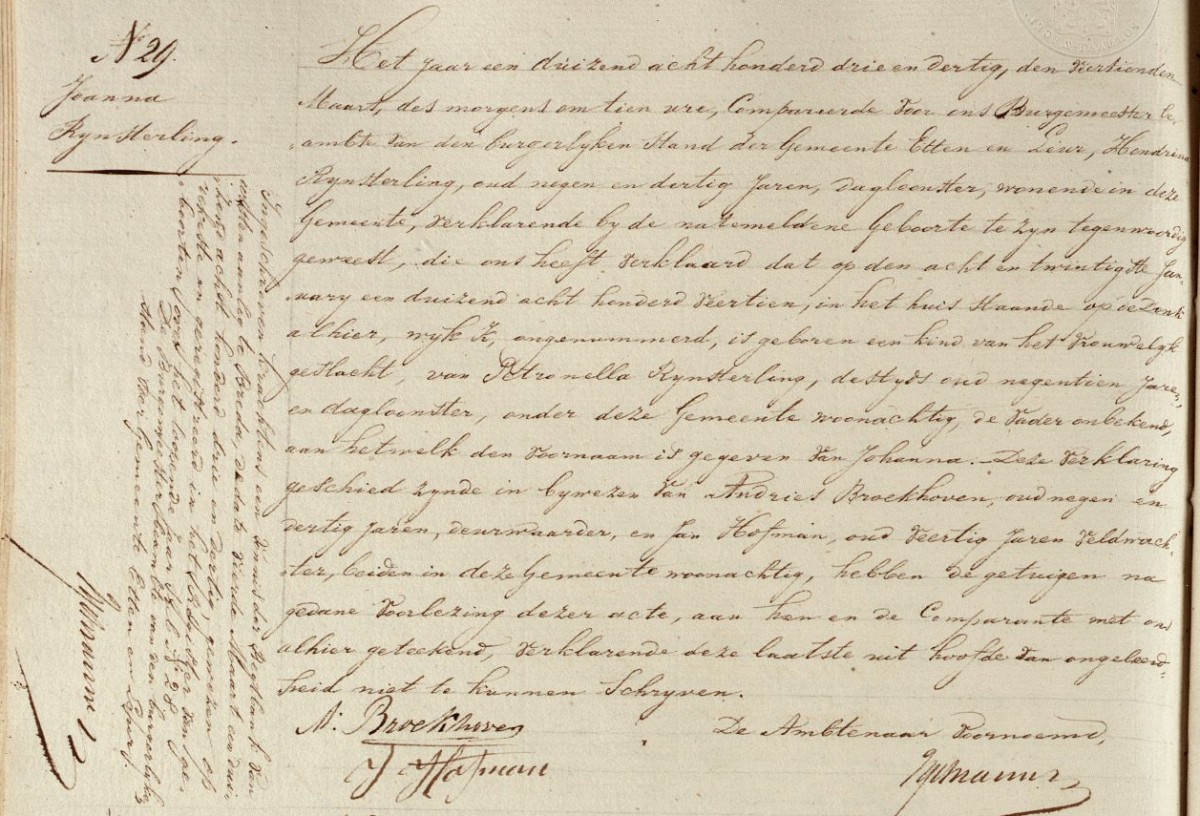 N 29.
Joanna
Rynsterling.
Het Jaar een duizend acht honderd drie en dertig, den Veertienden
Maart, des morgens om tien ure, Compareerde Voor ons Burgemeester be„
„ambte Van den burgerlyken Stand der Gemeente Etten en Leur, Hendrina
Rynsterling, oud negen en dertig Jaren, dagloonster, wonende in deze
Gemeente, Verklarende by de natemeldene Geboorte te zyn tegenwoordig
geweest, die ons heeft Verklaard dat op den acht en twintigste Jan„
„uary een duizend acht honderd Veertien, in het huis Staande op de
alhier, wyk K, ongenummerd, is geboren een kind van het Vrouwelyk
geslacht, van Petronella Rynsterling, destyds oud negentien Jaren,
en dagloonster, onder deze Gemeente woonachtig, de Vader onbekend,
aan hetwelk den Voornaam is gegeven Van Johanna. Deze Verklaring
geschied zynde in bywezen Van Andries Broekhoven, oud negen en
dertig Jaren, deurwaarder, en Jan Hofman, oud Veertig Jaren Veldwach„
„ter, beiden in deze Gemeente woonachtig, hebben de getuigen na
gedane Voorlezing dezer acte, aan hen en de Comparante met ons
alhier geteekend, Verklarende deze laatste uit hoofde Van ongeleerd„
„heid niet te kunnen Schryven.
A: Broekhoven
J Hofman
De Ambtenaar Voornoemd,
Ingeschreven krachtens een vonnis der Regtbank van
eersten aanleg te Breda, de dato Vierde Maart een dui„
„zend achth honderd drie en dertig, gewezen op
rekest en geregistreerd in het Register van Ge„
„boorten over het loopende Jaar No 28
De Burgemeester Ambte van den burgerlyken
Stand der Gemeente Etten en Leur,